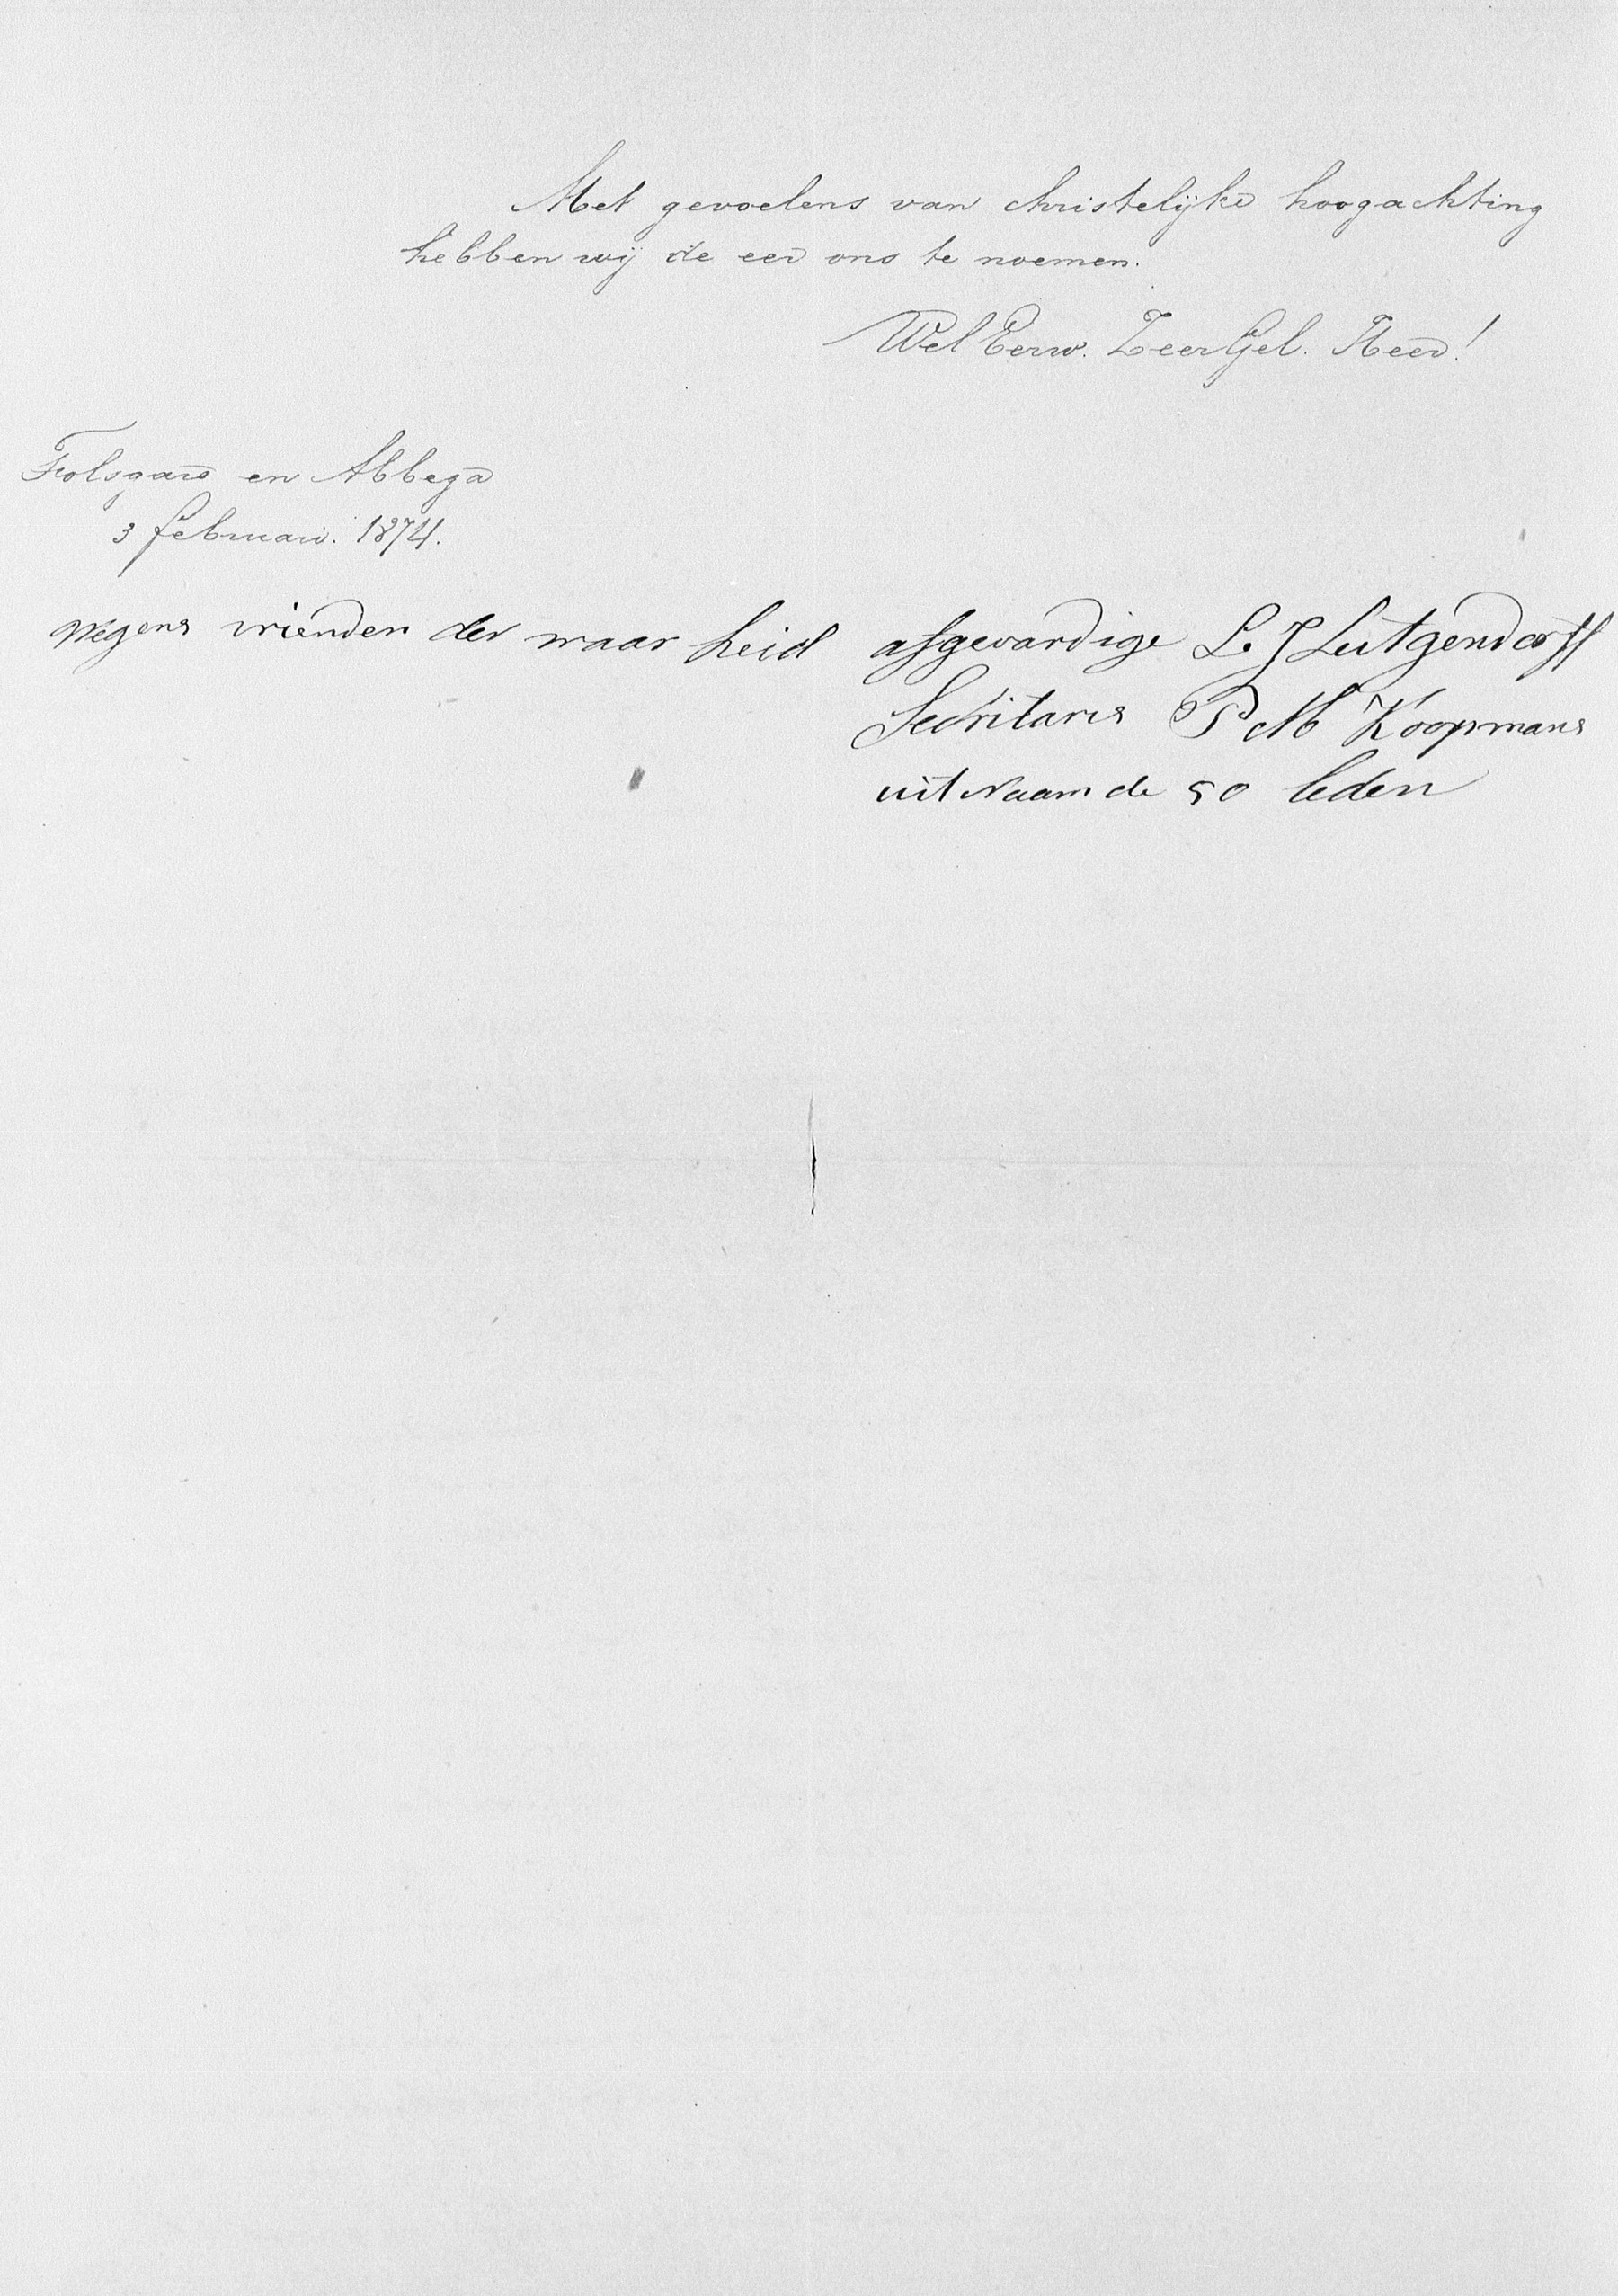 Met gevoelens van christelijke hoogachting
hebben wij de eer ons te noemen.
Wel Eerw. Zeer Gel. Heer!
Folsgare en Abbega
3 februari. 1874.
wegens vrienden der waar heid afgevardige L. J Lutgendorff
Secritaris P M Koopmans
uit Naam de 50 leden